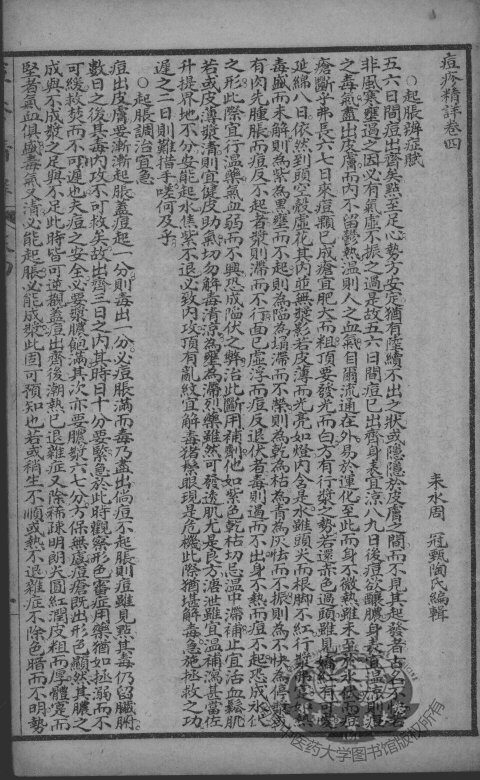 痘疹精詳卷四
耒水周 冠甄陶氏編輯
○起脹辨症賦
五六日間痘出齊矣熱至足心勢方安定猶有陸續不出之狀或隱隱於皮膚之間而不見其起發者古名不快若
非風寒壅遏之因必有氣虛不振之過是故五六日間痘已出齊身表宜涼八九日後痘欲釀膿身表宜溫涼則
之毒氣盡出皮膚而內不留鬱熱溫則人之血氣自爾流通在外易於運化至此而身不微熱雖未至於水伏而痘
瘡斷乎弗長六七日來痘顆已成瘡宜肥大而粗頂要發光而白方有行漿之勢若還赤色過頭雖見嬌紅有
延綿八日依然到頭空殼虛花其內並無漿影若皮薄而光亮如燈內含是水雖頭尖而根腳不紅行漿弗
毒盛而未解則為紫為黑壅而不起則為陷為塌滯而不榮則為乾為枯為青為灰怯而不振則為不快為停
有肉先腫脹而痘反不起者漿則滯而不行面已虛浮而痘反退伏者毒則遏而不出身不熱而痘不起恐成水伏
之形此際宜行溫藥氣血弱而不興恐成陷伏之弊治此斷用補劑他如紫色乾枯切忌溫中滯補正宜活血鬆肌
若或皮薄漿清則宜健皮助氣切勿解毒清涼為壅為滯烈藥雖然可發透肌尤是良方溏泄雖宜溫補瀉甚當佐
升提界地不分安能起水焦紫不退必致內攻頂有亂紋宜解毒猶鬆眼現是危機此際猶堪解毒急施拯救之功
遲之二日則難措手嗟何及乎
○起脹調治宜急
痘出皮膚要漸漸起脹蓋痘起一分則毒出一分必痘脹滿而毒乃盡出倘痘不起脹則痘雖見點其毒仍留臟腑
數日之後其毒內攻不可救矣故出齊三日之內其時日十分要緊急於此時觀察形色審症用藥猶如拯溺而不
可緩救焚而不可遲也夫痘之安全必要漿膿飽滿其次亦要膿漿六七分方保無虞痘瘡既出形色顯然其膿之
成與不成漿之足與不足此時皆可逆觀蓋痘出齊後潮熱已退雜症又除稀疎明朗尖圓紅潤皮粗而厚體寬而
堅者氣血俱盛毒氣又清必能起脹必能成漿此固可預知也若或稍生不順或熱不退雜症不除色暗而不明勢
中医药大学图书馆版权所有